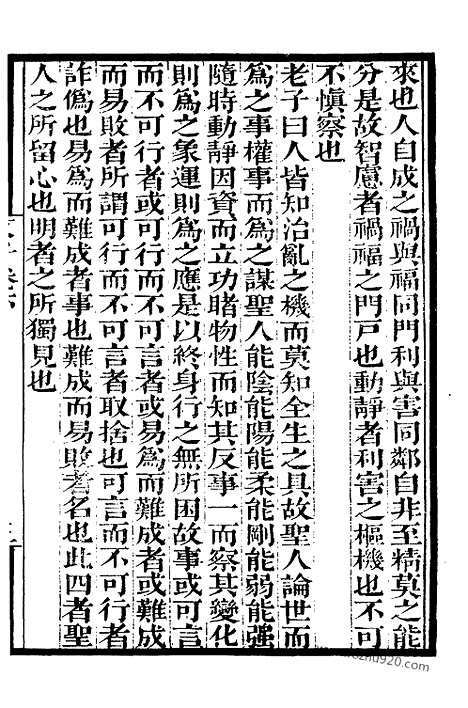 來也人自成之禍與福同門利與害同鄰自非至精莫之能
分是故智慮者禍福之門戸也動靜者利害之樞機也不可
不愼察也
老子曰人皆知治亂之機而莫知全生之具故聖人論世而
爲之事權事而爲之謀聖人能陰能陽能柔能剛能弱能强
隨時動靜因資而立功睹物性而知其反事一而察其變化
則爲之象運則爲之應是以終身行之無所困故事或可言
而不可行者或可行而不可言者或易爲而難成者或難成
而易敗者所謂可行而不可言者取捨也可言而不可行者
詐僞也易爲而難成者事也難成而易敗者名也此四者聖
人之所留心也明者之所獨見也